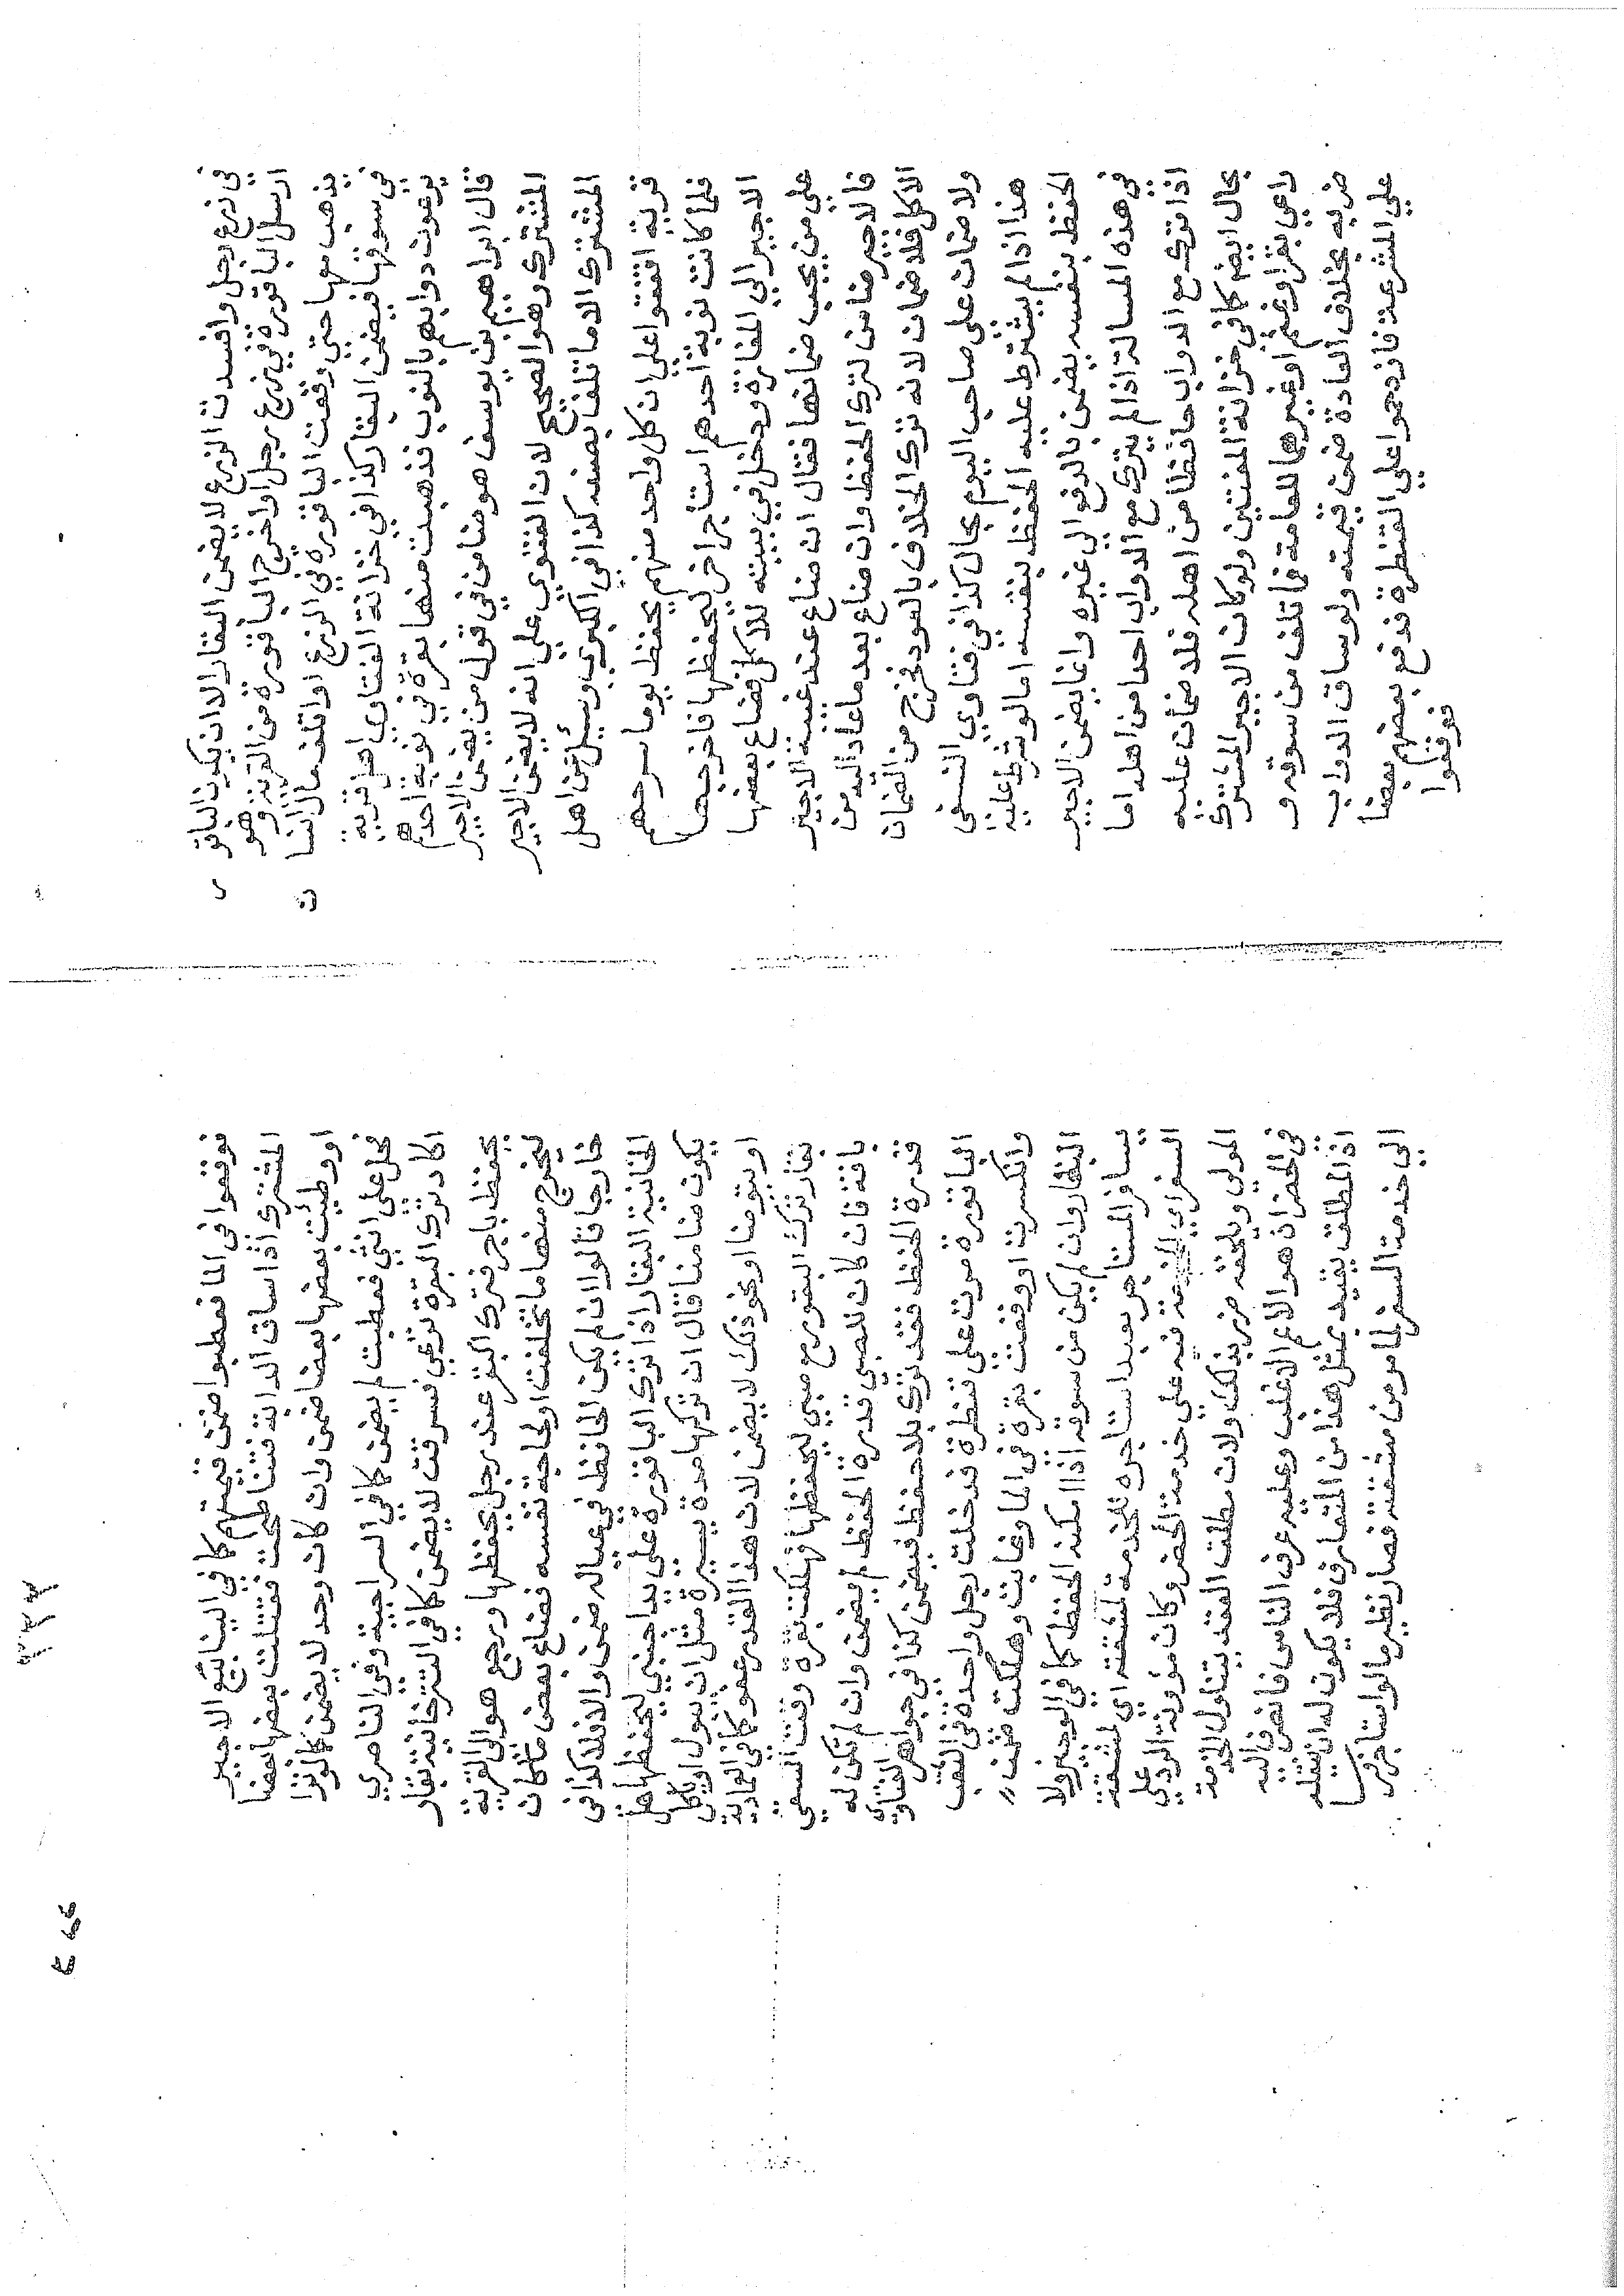 في زرع رجل وافسدت الزرع لا يضمن البقار الا ان يكون الباقور
ارسل الباقورة في زرع رجل او اخرج الباقورة من القرية وهو
يذهب معها حتي وقعت الباقورة في الزرع او اتلف مال انسان
في سوقها فيضمن البقار كذا في خزانة الفتاوي اهل قرية
يرعون دوابهم بالنوب فذهبت منها بقرة في نوبة احدهم
قال ابراهيم بن يوسف هو ضامن في قول من يضمن الاجير
المشترك وهو الصحيح لان الفتوي علي انه لا يضمن الاجير
المشترك الا ما تلف بصنعه كذا في الكبري وسئل عن اهل
قرية اتفقوا علي ان كل واحد منهم يحفظ يوما سرحهم
فلما كانت نوبة احدهم استأجر اخر ليحفظها فاخرجها
الاجير الي المفازة ودخل في بيته للاكل فضاع بعضها
علي من يجب ضمانها فقال ان ضاع عند غيبة الاجير
فالاجير ضامن لترك الحفظ وان ضاع بعد ما عاد اليه من
الاكل فلا ضمان لانه ترك الخلاف بالعود فخرج من الضمان
ولا ضمان علي صاحب اليوم بحال كذا في فتاوي النسفي
هذا اذا لم يشترط عليه الحفظ بنفسه اما لو شرط عليه
الحفظ بنفسه يضمن بالدفع الي غيره وانما يضمن الاجير
في هذه المسالة اذا لم يترك مع الدواب احدا من اهله اما
اذا ترك مع الدواب حافظا من اهله فلا ضمان عليه
بحال ايضم كما في خزانة المفتين ولو كان الاجير المشترك
راعي بقر او غنم او غيرهما للعامة فما تلف من سوقه و
ضربه بخلاف العادة ضمن قيمته ولو ساق الدواب
علي المشرعة فازدحموا علي القنطرة فدفع بعضهم بعضا
فوقعوا
فوقعوا في الما فعطبوا ضمن قيمتهم كما في الينابيع الاجير
المشترك اذا ساق الدابة فتناطحت فقتلت بعضها بعضا
او وطئت بعضها بعضا ضمن وان كان وحد لا يضمن كما لو نزا
فحل علي انثي فعطبت لم يضمن كما في السراجية وفي الناصري
اكار ترك البقرة ترعي فسرقت لا يضمن كما في التترخانية بقار
يحفظ باجر فترك البقر عند رجل يحفظها ورجع هو الي القرية
ليخرج منها ما تخلفت او لحاجة نفسه فضاع بعض ما كان
خارجا قالوا ان لم يكن الحافظ في عياله ضمن والا فلا كذا في
الخانية البقار اذا ترك الباقورة علي يد اجنبي ليحفظها هل
يكون ضامنا قال ان تركها مدة يسيرة مثل ان يبول او ياكل
او يتوضا او نحو ذلك لا يضمن لان هذا القدر عفو كما في العمادية
بقار ترك البقور مع صبي ليحفظها فهلكت بقرة وقت السقي
بافة فان كان للصبي قدرة الحفظ لم يضمن وان لم تكن له
قدرة الحفظ فقد ترك بلا حفظ فيضمن كذا في جواهر الفتاوي
الباقورة مرت علي قنطرة فدخلت رجل واحدة في الثقب
وانكسرت او وقعت بقرة في الما وغابت وهلكت ضمن
البقار وان لم يكن من سوقه اذا امكنه الحفظ كما في الوجيز ولا
يسافر المستاجر بعبد استاجره للخدمة لمشقته اي لمشقة
السفر اي الخدمة فيه علي خدمة الحضر وكان مؤونة الرد علي
المولي ويلحقه ضرر بذلك ولان مطلق العقد يتناول الخدمة
في الحضر اذ هو الاعم الاغلب وعليه عرف الناس فانصرف اليه
اذ المطلق يتقيد بمثل هذا من المتعارف فلا يكون له ان ينقله
الي خدمة السفر لما مر من مشقته فصار نظير ما لو استاجر فرسا